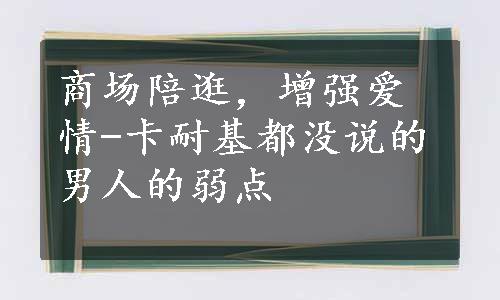 商场陪逛，增强爱
情-卡耐基都没说的
男人的弱点